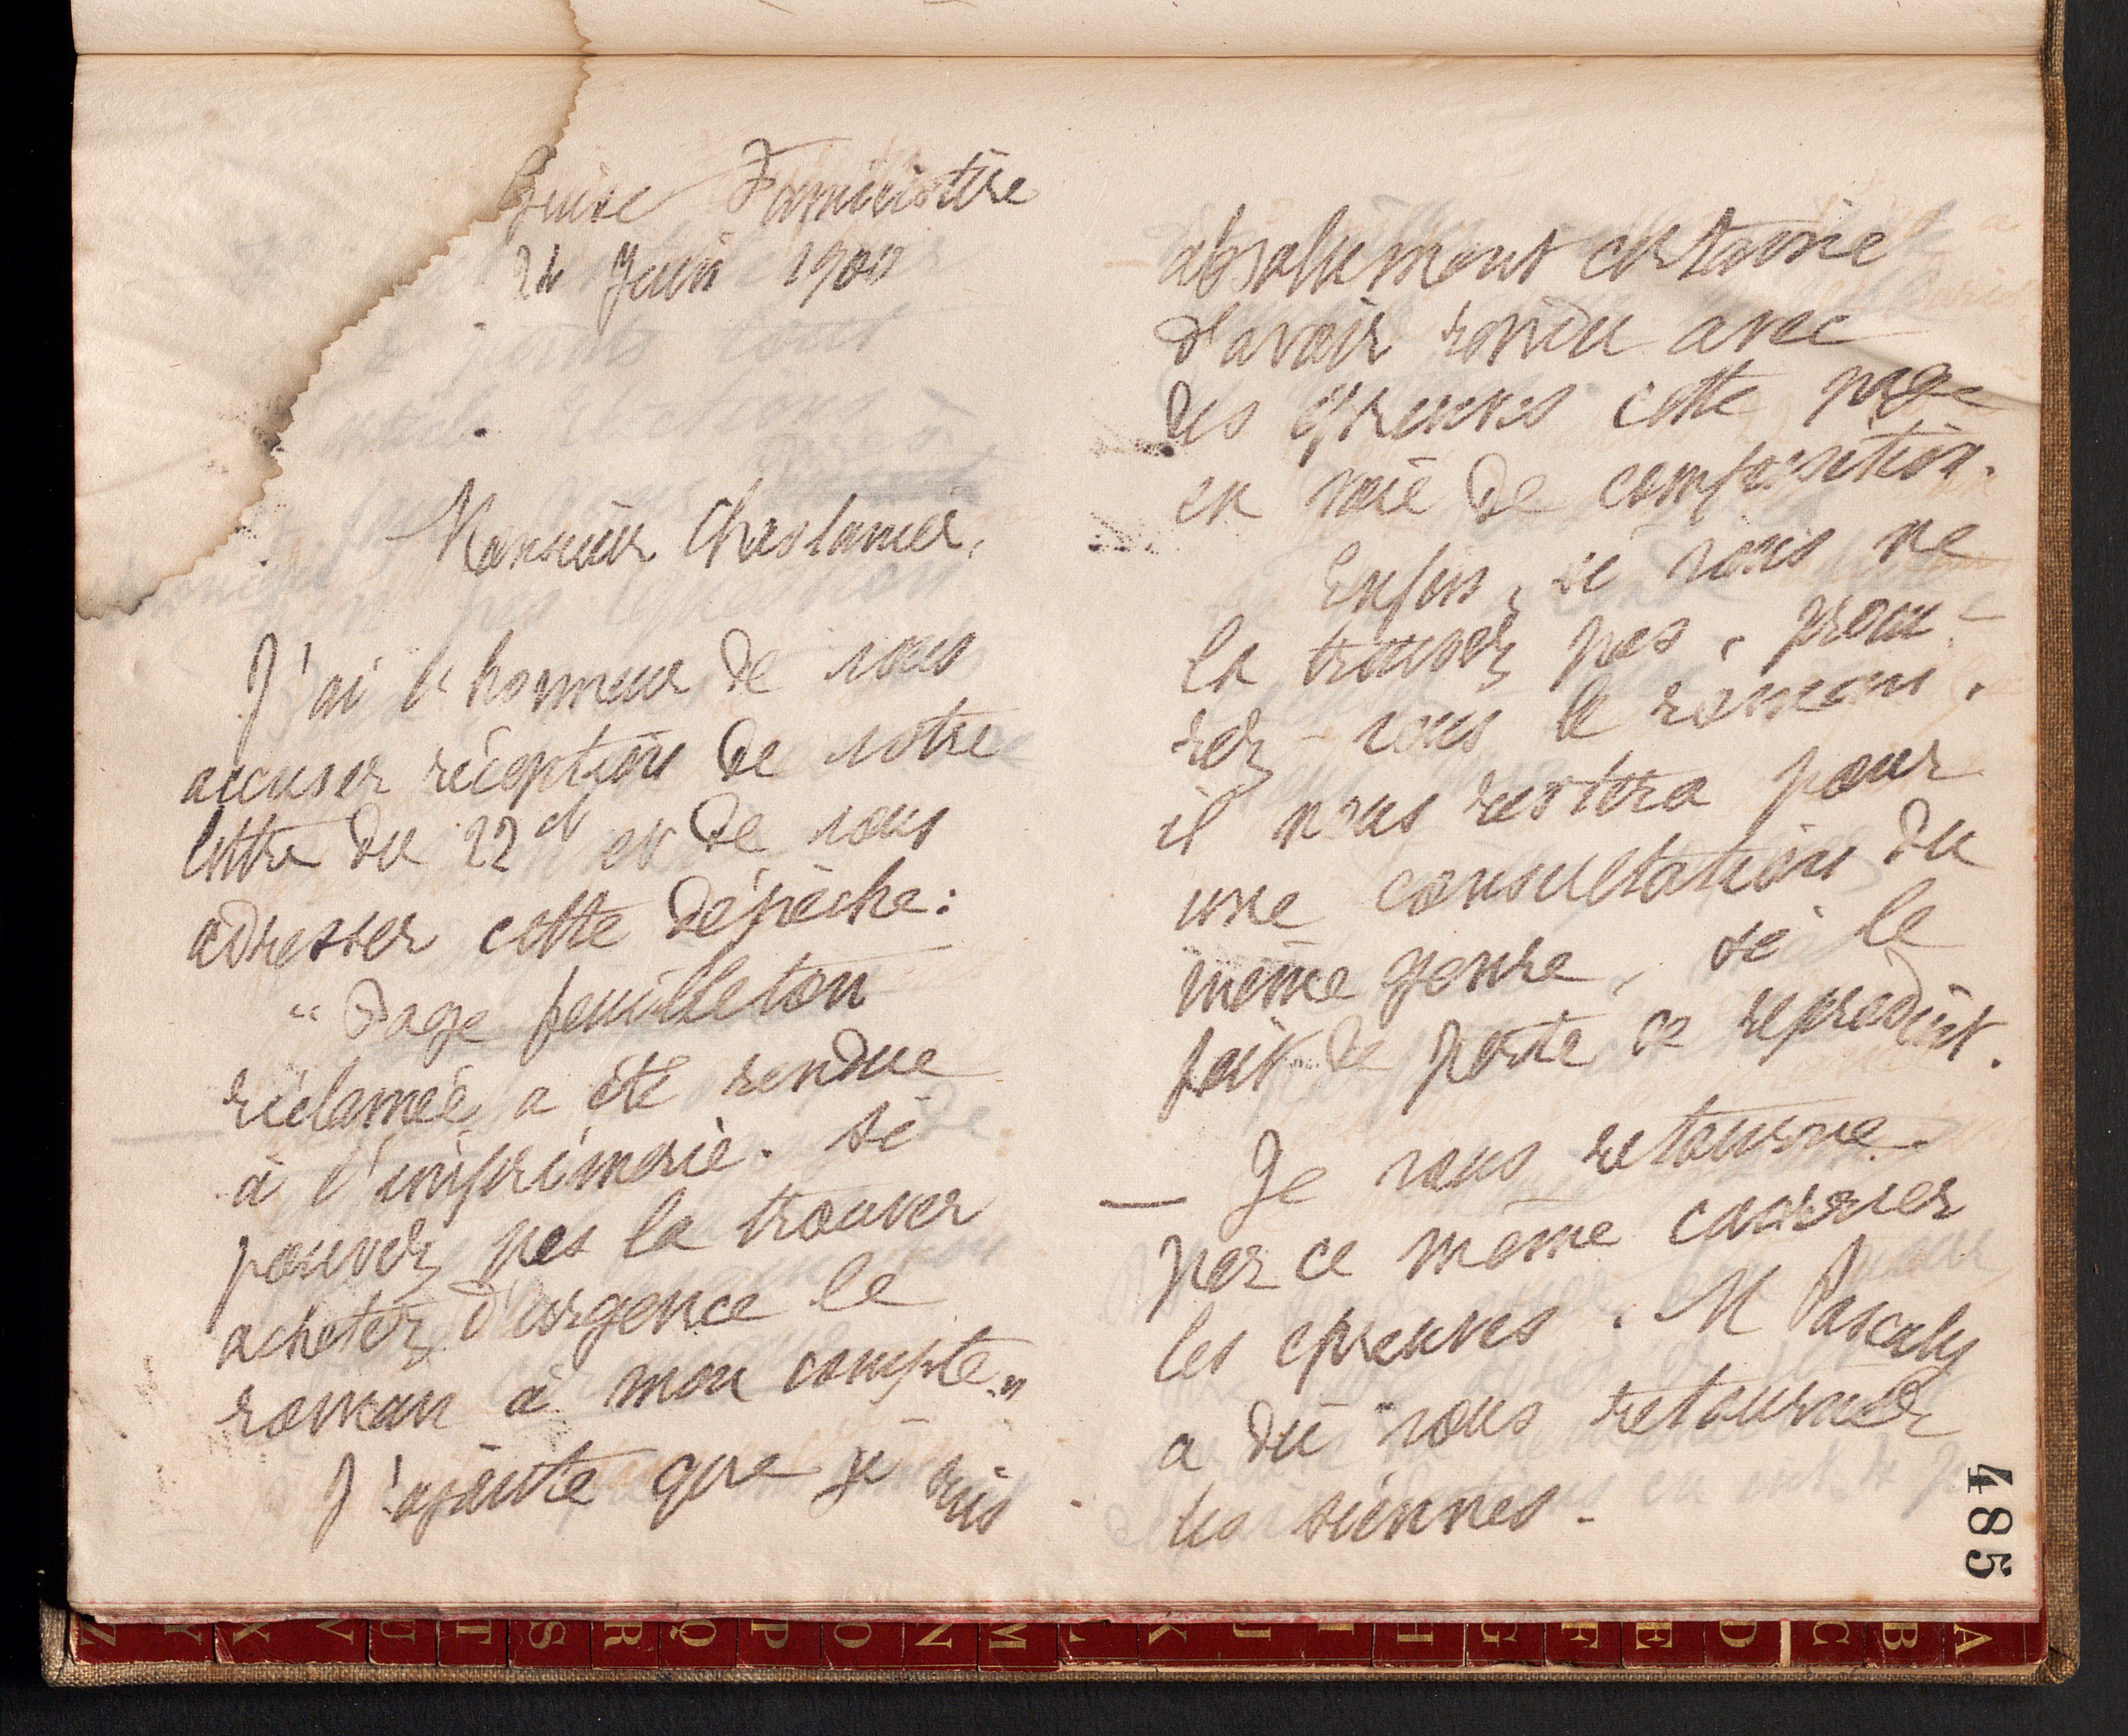 Guise Familistère
24 Juin 1900
Monsieur Chastanier,
J'ai l'honneur de vous
accuser réception de votre
lettre du 22 ct et de vous
adresser cette dépêche :
"Page feuilleton
réclamée a été rendue
à l'imprimerie. Si
pouvez pas la trouver
achetez d'urgence le
roman à mon compte."
J'ajoute que je suis
absolument certaine
d'avoir rendu avec
des épreuves cette page
en voie de composition.
Enfin, si vous ne
la trouvez pas, procu-
rez-vous le roman,
il nous restera pour
une consultation du
même genre, si le
fait de perte se reproduit.
— Je vous retourne
par ce même courrier
les épreuves. M Pascaly
a dû vous retourner
les siennes.
485
Z Y X V U T S R Q P O N M L K J I H G F E D C B A